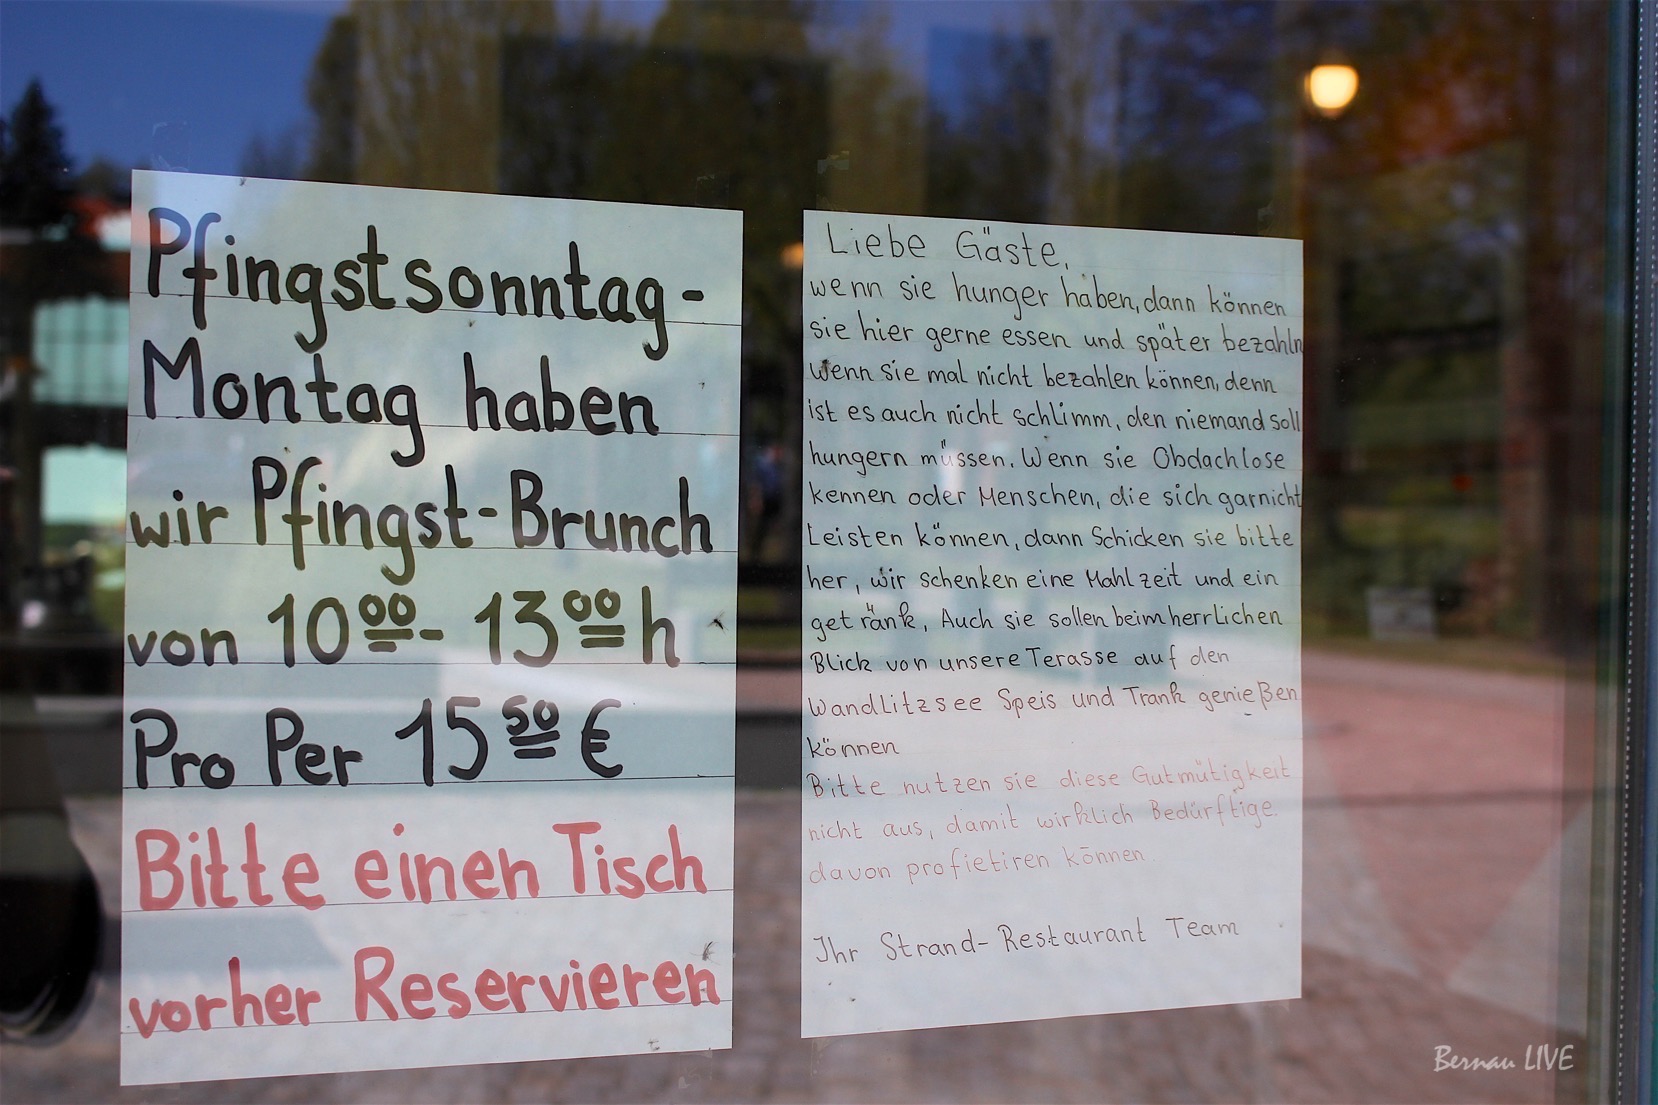 Pfingstsonntag-
Montag haben
wir Pfingst-Brunch
von 10⁰⁰- 13⁰⁰ h
Pro Per 15⁵⁰ €
Bitte einen Tisch
vorher Reservieren
Liebe Gäste,
wenn sie hunger haben, dann können
sie hier gerne essen und später bezahln
wenn sie mal nicht bezahlen können, denn
ist es auch nicht schlimm, den niemand soll
hungern müssen. Wenn sie Obdachlose
kennen oder Menschen, die sich garnicht
Leisten können, dann Schicken sie bitte
her, wir schenken eine Mahlzeit und ein
getränk, Auch sie sollen beim herrlichen
Blick von unsere Terasse auf den
Wandlitzsee Speis und Trank genießen
können
Bitte nutzen sie diese Gutmütigkeit
nicht aus, damit wirklich Bedürftige
davon profietiren können
Ihr Strand-Restaurant Team
Bernau LIVE